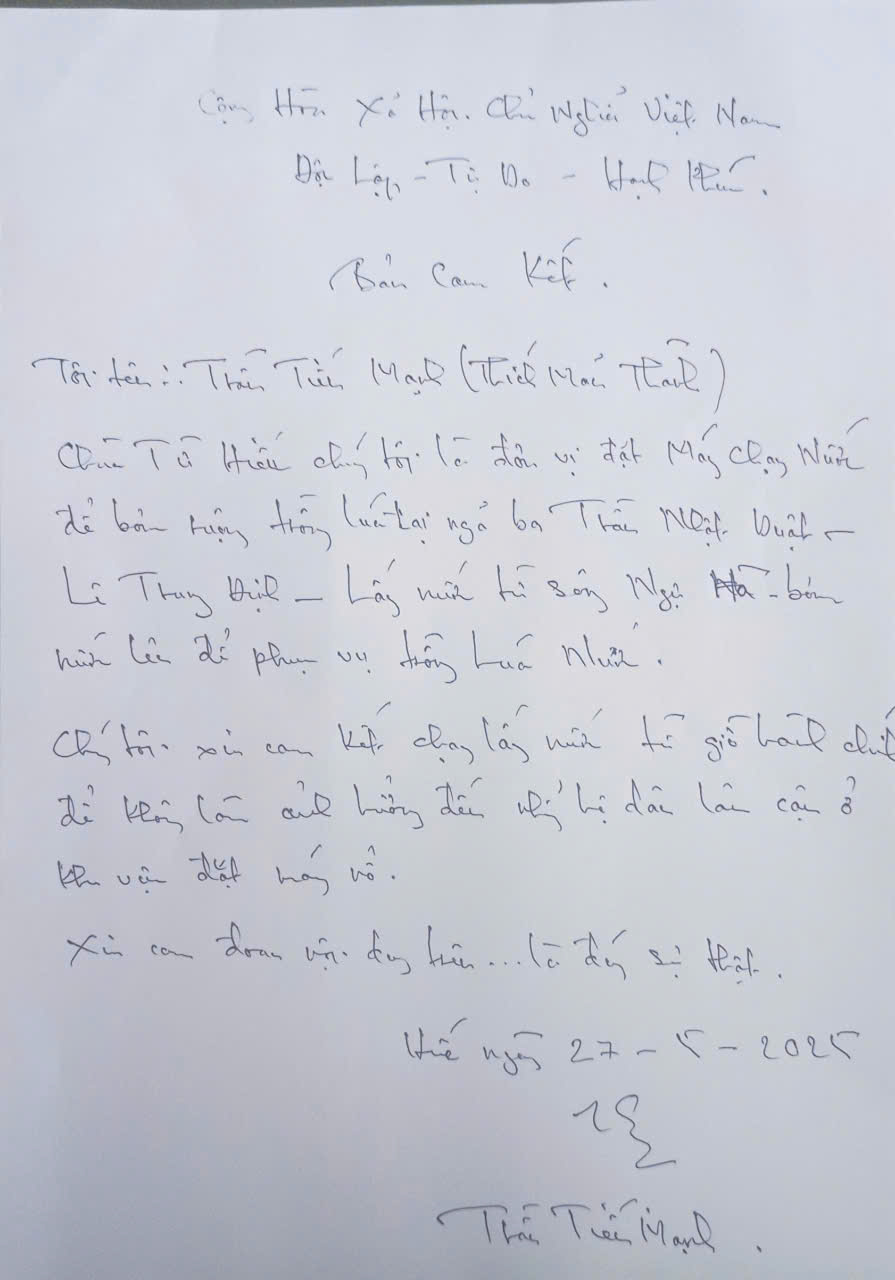 Cộng Hòa Xã Hội Chủ Nghĩa Việt Nam
Độc Lập - Tự Do - Hạnh Phúc.
Bản Cam Kết.
Tôi tên: Trần Tiến Mạnh (Thích Mẫn Thành)
Chùa Từ Hiếu chúng tôi là đơn vị đặt Máy Chạy Nước
để bơm ruộng trồng lúa tại ngã ba Trần Nhật Duật -
Lê Trung Định - Lấy nước từ sông Ngự Hà - bơm
nước lên để phục vụ trồng Lúa Nước.
Chúng tôi xin cam kết chạy lấy nước từ giờ hành chính
để không làm ảnh hưởng đến những hộ dân lân cận ở
khu vực đặt máy nổ.
Xin cam đoan nội dung trên... là đúng sự thật.
Huế ngày 27 - 5 - 2025
Trần Tiến Mạnh.